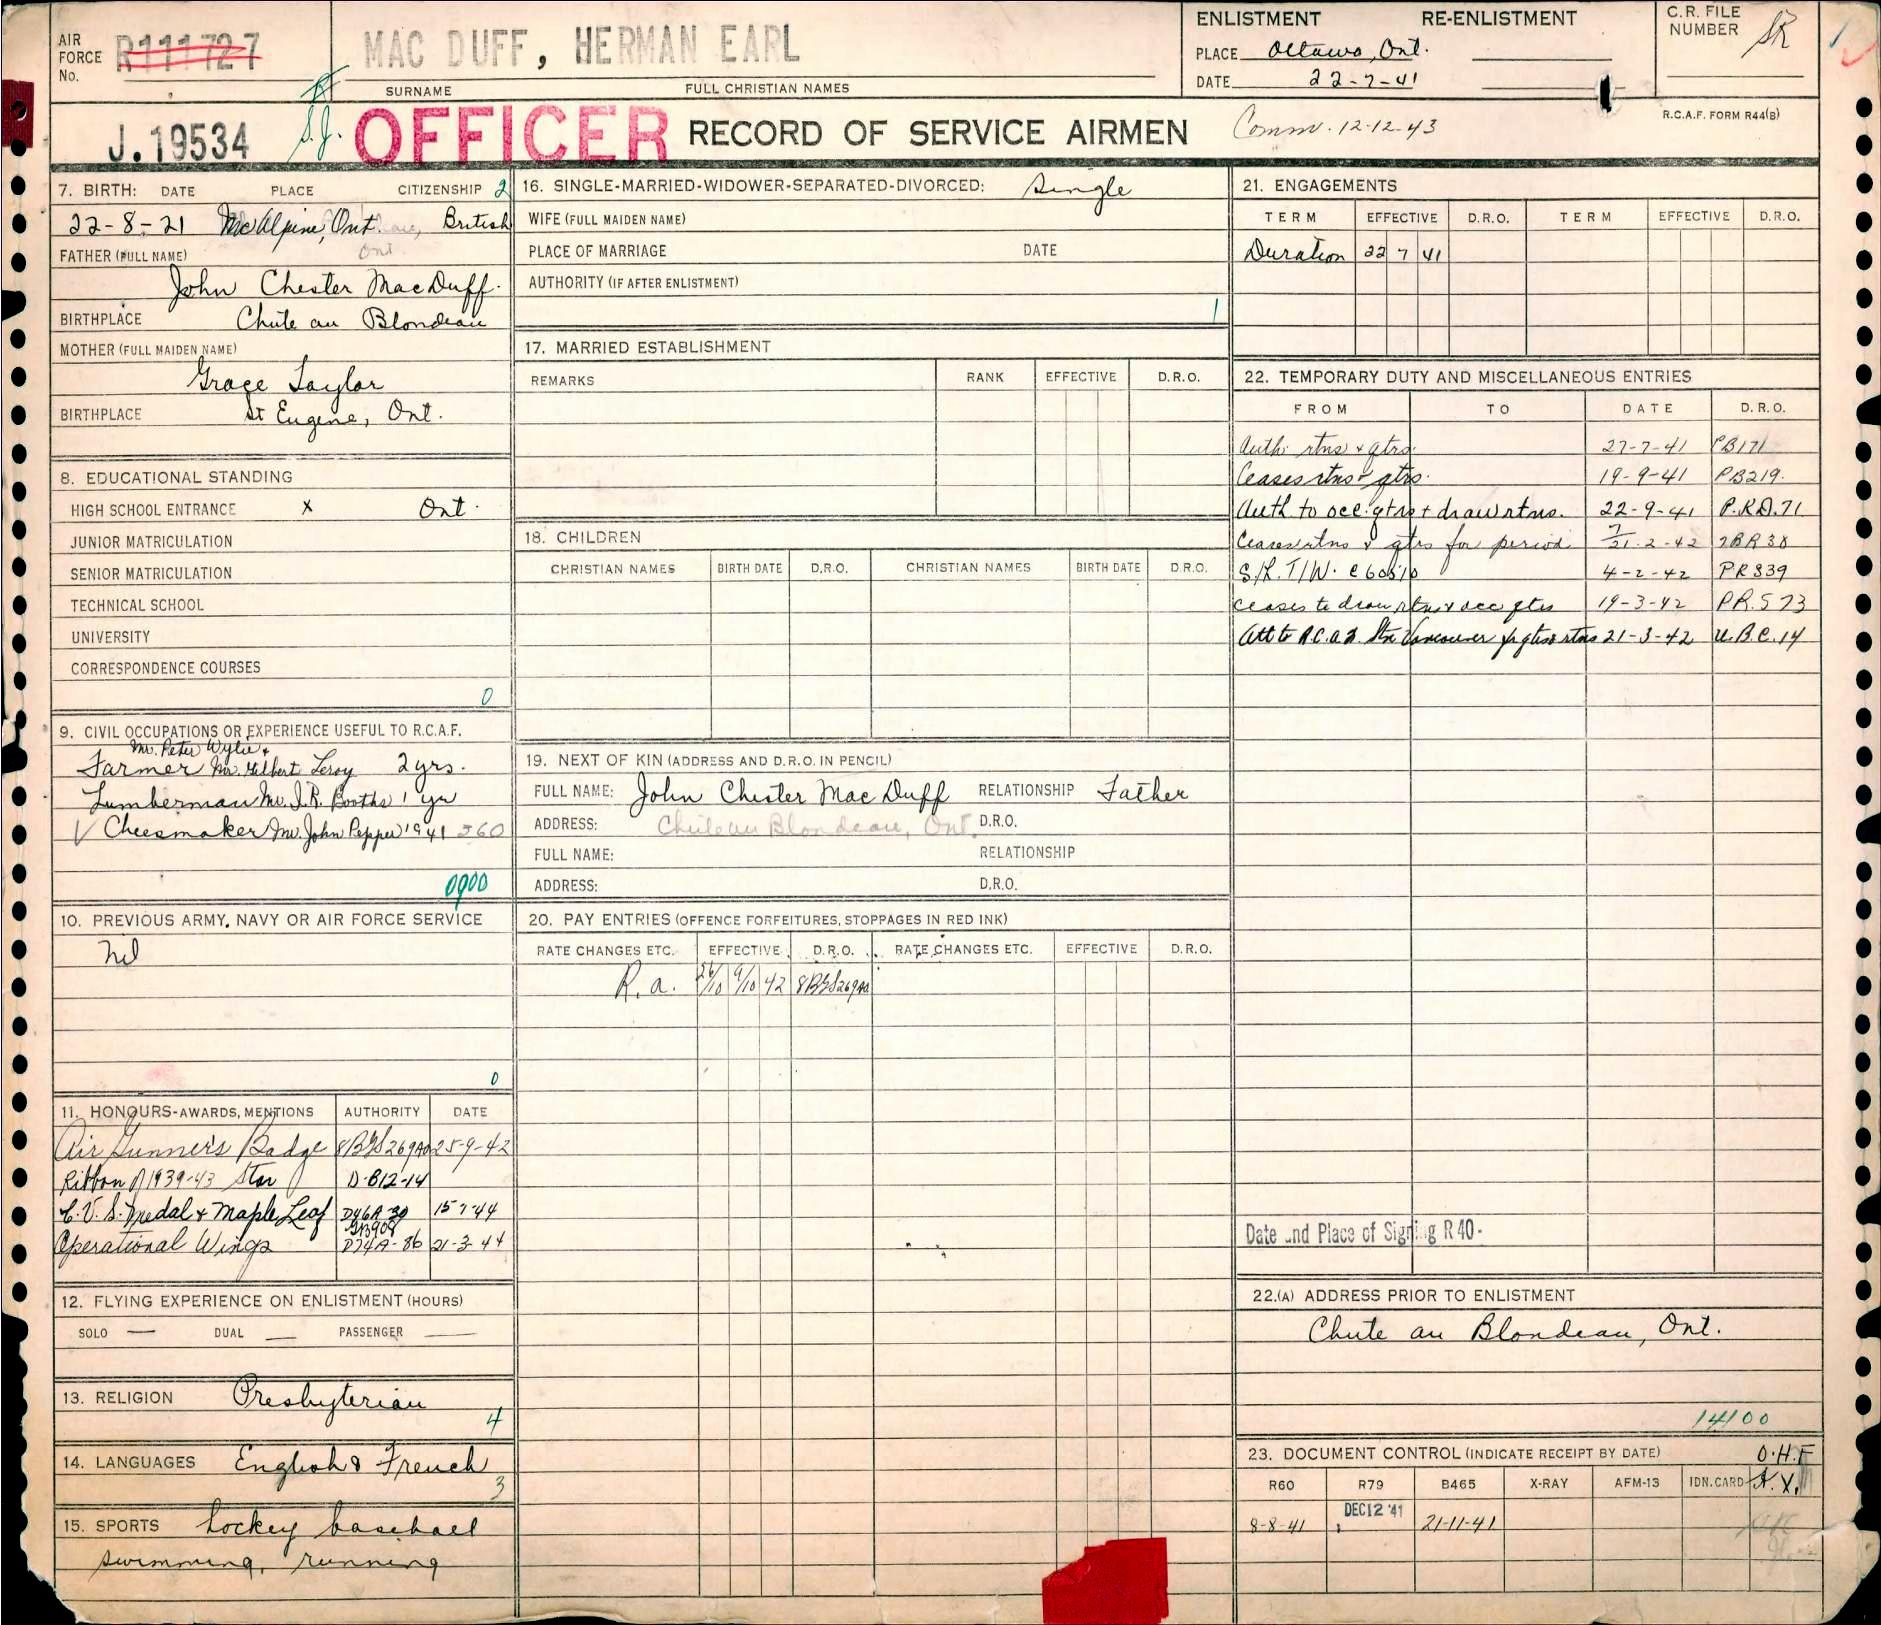 AIR FORCE No. R111727
MAC DUFF, HERMAN EARL
SURNAME FULL CHRISTIAN NAMES
ENLISTMENT RE-ENLISTMENT
PLACE Ottawa, Ont.
DATE 22-7-41
C.R. FILE NUMBER SR
J.19534
S.J.
OFFICER RECORD OF SERVICE AIRMEN
Comm. 12-12-43
R.C.A.F. FORM R44(B)
7. BIRTH: DATE PLACE CITIZENSHIP 2
22-8-21 McAlpine, Ont. British
Ont
FATHER (FULL NAME)
John Chester MacDuff.
BIRTHPLACE Chute au Blondeau
MOTHER (FULL MAIDEN NAME)
Grace Taylor
BIRTHPLACE St Eugene, Ont.
8. EDUCATIONAL STANDING
HIGH SCHOOL ENTRANCE X Ont.
JUNIOR MATRICULATION
SENIOR MATRICULATION
TECHNICAL SCHOOL
UNIVERSITY
CORRESPONDENCE COURSES
0
9. CIVIL OCCUPATIONS OR EXPERIENCE USEFUL TO R.C.A.F.
Mr. Peter Wylie +
Farmer Mr. Gilbert Leroy 2 yrs.
Lumberman Mr. J.R. Booths 1 yr
√ Cheesmaker Mr. John Pepper 1941 360
0900
10. PREVIOUS ARMY, NAVY OR AIR FORCE SERVICE
Nil
0
11. HONOURS-AWARDS, MENTIONS AUTHORITY DATE
Air Gunner's Badge 8BGS269A0 25-9-42
Ribbon of 1939-43 Star D-B12-14
C.V.S. Medal + Maple Leaf D46A-30 15-7-44
GB909
Operational Wings D74A-86 21-3-44
12. FLYING EXPERIENCE ON ENLISTMENT (HOURS)
SOLO — DUAL — PASSENGER —
13. RELIGION Presbyterian
4
14. LANGUAGES English & French
3
15. SPORTS hockey baseball
swimming, running
16. SINGLE-MARRIED-WIDOWER-SEPARATED-DIVORCED: Single
WIFE (FULL MAIDEN NAME)
PLACE OF MARRIAGE DATE
AUTHORITY (IF AFTER ENLISTMENT)
1
17. MARRIED ESTABLISHMENT
REMARKS RANK EFFECTIVE D.R.O.
18. CHILDREN
CHRISTIAN NAMES BIRTH DATE D.R.O. CHRISTIAN NAMES BIRTH DATE D.R.O.
19. NEXT OF KIN (ADDRESS AND D.R.O. IN PENCIL)
FULL NAME: John Chester MacDuff RELATIONSHIP Father
ADDRESS: Chute au Blondeau, Ont. D.R.O.
FULL NAME: RELATIONSHIP
ADDRESS: D.R.O.
20. PAY ENTRIES (OFFENCE FORFEITURES, STOPPAGES IN RED INK)
RATE CHANGES ETC. EFFECTIVE D.R.O. RATE CHANGES ETC. EFFECTIVE D.R.O.
R.a. 26/10 9/10 42 8BGS269A0
21. ENGAGEMENTS
TERM EFFECTIVE D.R.O. TERM EFFECTIVE D.R.O.
Duration 22 7 41
22. TEMPORARY DUTY AND MISCELLANEOUS ENTRIES
FROM TO DATE D.R.O.
Auth. rtns & qtrs. 27-7-41 PB171
Ceases rtns & qtrs. 19-9-41 PB219.
Auth. to occ. qtrs + draw rtns. 22-9-41 P.RD.71
Ceases rtns & qtrs for period 7/21-2-42
S/L. T/W. C60510 4-2-42 PRS39
ceases to draw rtns & occ qtrs 19-3-42 PR.S73
Att to R.C.A.F. Stn Vancouver for qtrs & rtns 21-3-42 U.B.C.14
Date and Place of Signing R40-
22.(A) ADDRESS PRIOR TO ENLISTMENT
Chute au Blondeau, Ont.
14100
23. DOCUMENT CONTROL (INDICATE RECEIPT BY DATE) O.H.F
R60 R79 B465 X-RAY AFM-13 IDN. CARD
8-8-41 DEC 12 '41 21-11-41